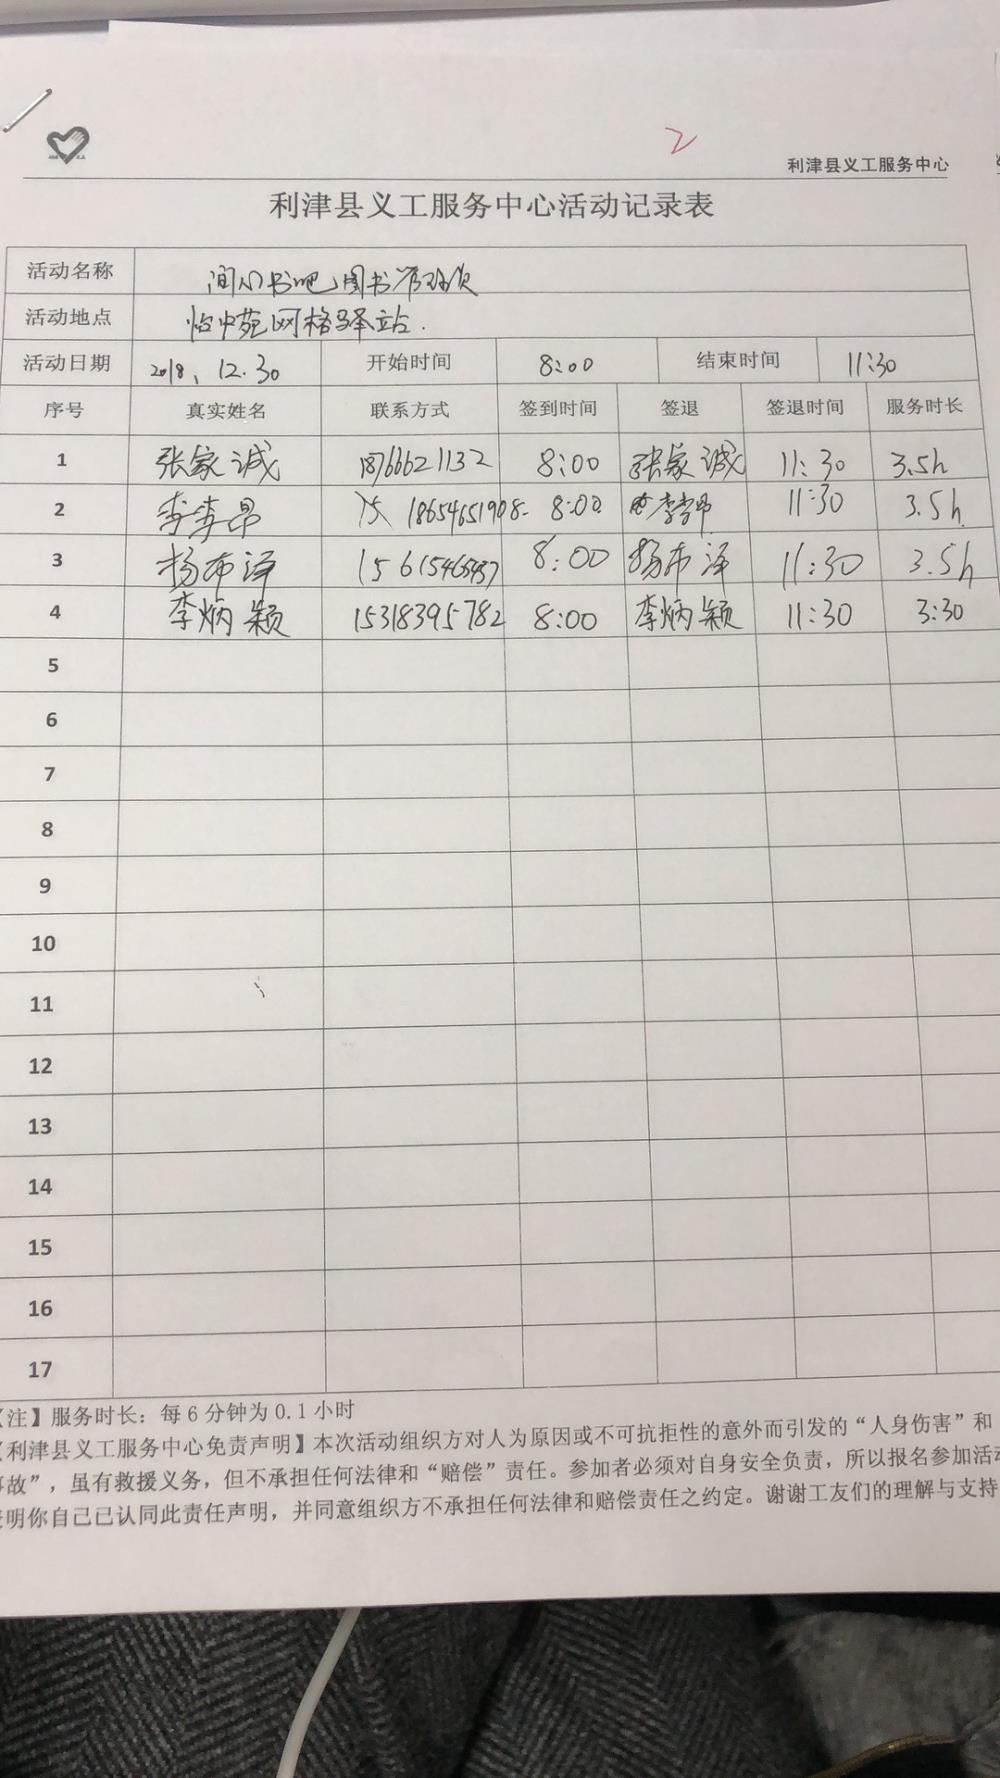 2
利津县义工服务中心
利津县义工服务中心活动记录表
活动名称 书吧图书管理员
活动地点 怡中苑网格驿站.
活动日期 2018、12.30 开始时间 8:00 结束时间 11:30
序号 真实姓名 联系方式 签到时间 签退 签退时间 服务时长
1 张家诚 18766621132 8:00 张家诚 11:30 3.5h
2 李李昂 18654651908 8:00 李李昂 11:30 3.5h
3 杨布泽 8:00 杨布泽 11:30 3.5h
4 李炳颖 15318395782 8:00 李炳颖 11:30 3:30
5
6
7
8
9
10
11
12
13
14
15
16
17
注】服务时长：每 6 分钟为 0.1 小时
【利津县义工服务中心免责声明】本次活动组织方对人为原因或不可抗拒性的意外而引发的“人身伤害”和
事故”，虽有救援义务，但不承担任何法律和“赔偿”责任。参加者必须对自身安全负责，所以报名参加活动
表明你自己已认同此责任声明，并同意组织方不承担任何法律和赔偿责任之约定。谢谢工友们的理解与支持